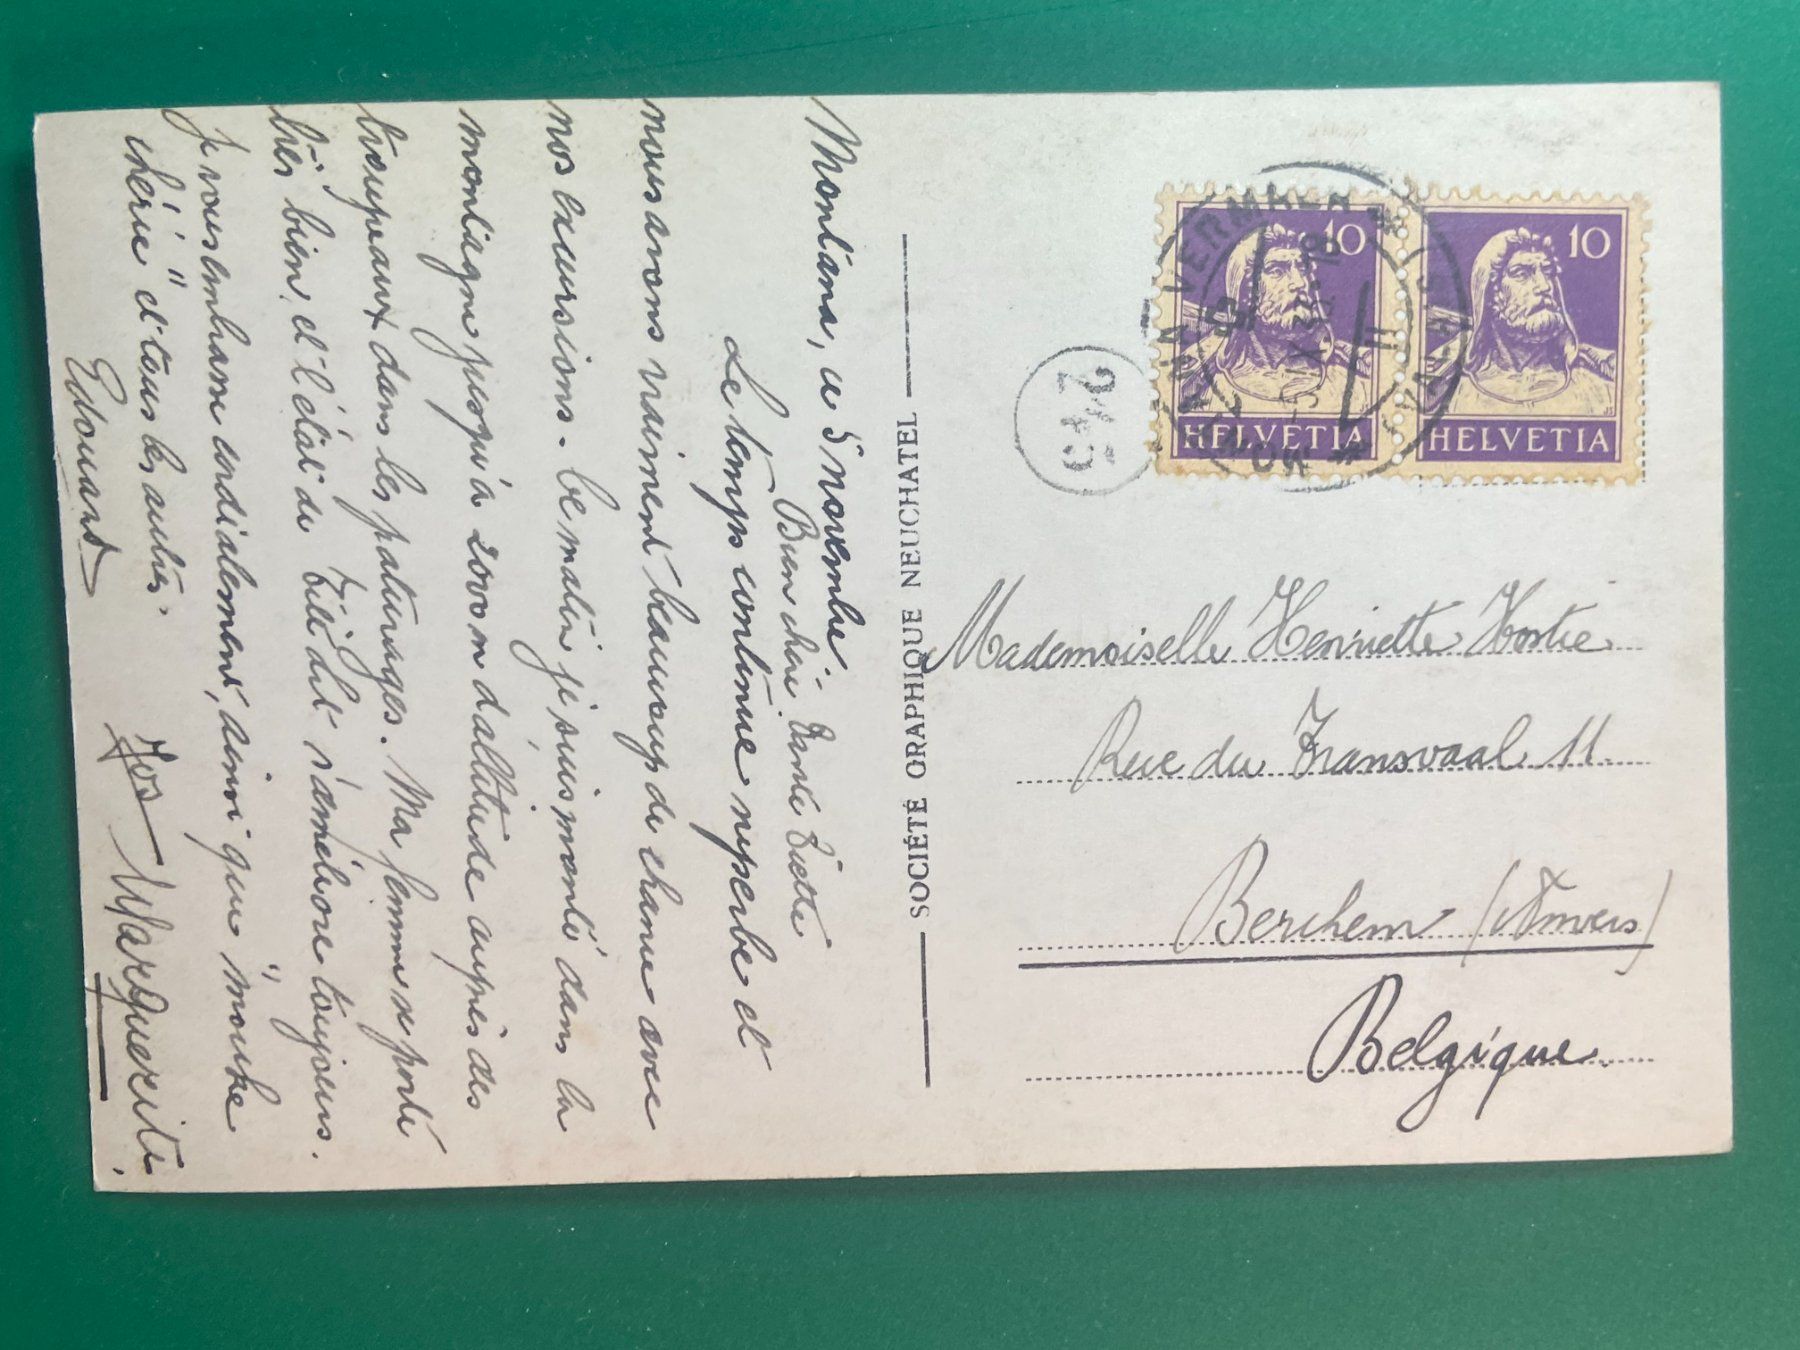 Montana, ce 5 novembre
Bien chère Tante
Le temps continue superbe et
nous avons vraiment beaucoup de chance avec
nos excursions. Ce matin je suis monté dans la
montagne jusqu'à 2000 m d'altitude auprès des
troupeaux dans les paturages. Ma femme se porte
très bien et l'état de s'améliore toujours.
Je vous embrasse cordialement, ainsi que "mouke
chérie" et tous les autres.
Edouard
Jos Marguerite.
SOCIÉTÉ GRAPHIQUE NEUCHATEL
10
HELVETIA
10
HELVETIA
MONTANA VERMALA
(VALAIS)
243
Mademoiselle Henriette Hostie
Rue du Transvaal 11.
Berchem (Anvers)
Belgique